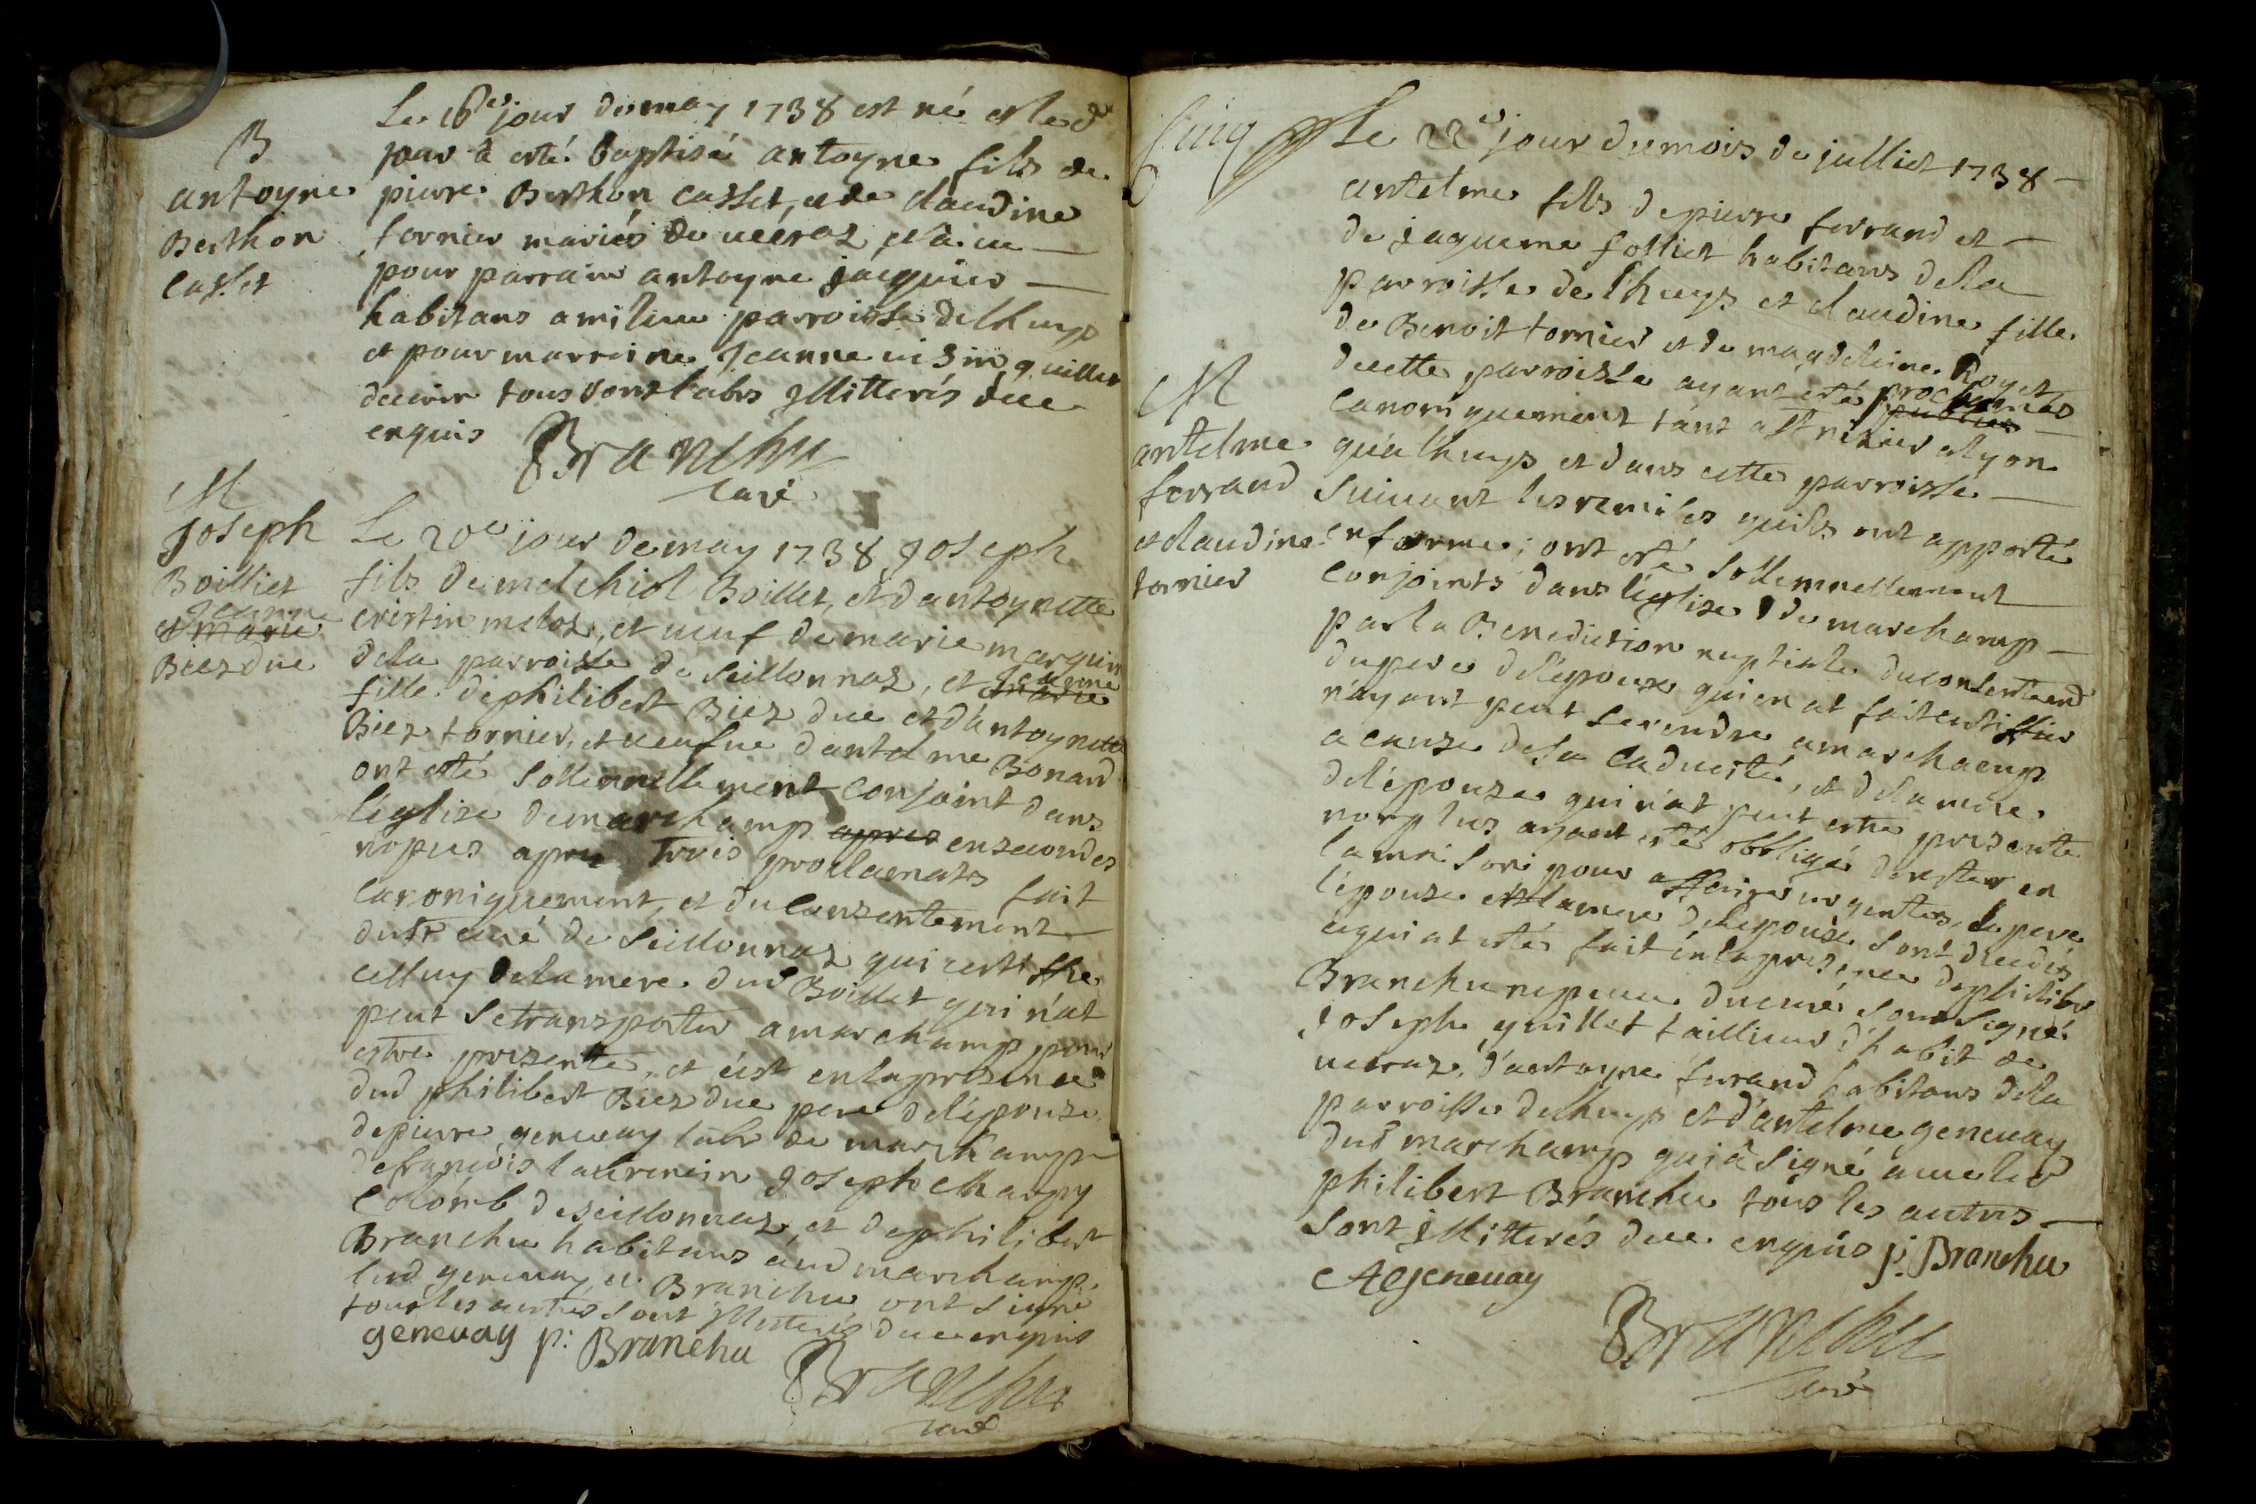 B
antoyne
Berthon
Casset
Le 16e jour de may 1738 est né et led
jour a esté baptisé antoyne fils de
pierre Berthon casset, et de claudine
fornier mariés de uceraz, et a eu
pour parrain antoyne jacquier
habitans a milieu parroisse delhuys
et pour marraine Jeanne quillet
tous sont labrs Illitterés de ce
enquis
Branchu
curé
M
Joseph
Boilliet
Jeanne
et marie
Biez due
Le 20e jour de may 1738 Joseph
fils de melchiol Boillet, et dantoynette
cristin meloz, et ueuf de marie marquin
dela parroisse de Seillonnaz, et Jeanne
marie
fille de philibert Biez due et d'antoynette
Biez fornier, et ueufue dantelme Bonard
ont esté Sollennellement conjoint dans
léglize demarchamp apres en secondes
nopces apres Trois proclamats fait
canoniquement, et du consentement
dusr curé de Seillonnaz qui certifhe
celluy dela mere dud Boillet qui n'at
peut se transporter a marchamp pour
estre presente, et c'ést en la presence
dud philibert Biez due pere del'épouze
depierre geneuay labr de marchamp
defrancois laurencin Joseph Charpy
Colomb deseillonnaz, et dephilibert
Branchu habitans aud marchamp
lesd geneuay et Branchu ont signé
tous les autres sont Illiterés de ce enquis
geneuay p: Branchu
Branchu
curé
Cinq
Le 22e jour du mois de julliet 1738
antelme fils depierre ferrand et
de jaqueme folliet habitans dela
parroisse de lhuys et claudine fille
de Benoit fornier et de magdeleine Royet
decette parroisse ayant esté proclamés
publiés
canoniquement tant a St nizier alyon
qu'a lhuys et dans cette parroisse
Suivant les remises quils ont apporté
en forme; ont esté Sollemnellement
conjoints dans l'églize de marchamp
par la Benediction nuptiale du consentemend
du pere del'époux qui en at fait certiffier
n'ayant peut se rendre amarchamp
a cauze de sa caducité, et dela mere
del'épouze qui n'at peut estre presente
non plus ayant esté obbligé de rester en
la maison pour affaires urgentes, le pere
l'épouze et la mere del'epouze sont décédés
ce qui at esté fait en la presence dephilibert
Branchu nepueu du curé soussigné
Joseph quillet taillieur d'habit de
uceraz, d'antoyne ferrand habitans dela
parroisse delhuys et d'antelme geneuay
dud marchamp qui a Signé auec led
philibert Branchu tous les autres
sont Illitterés de ce enquis p: Branchu
A geneuay
Branchu
curé
M
antelme
ferrand
et claudine
fornier